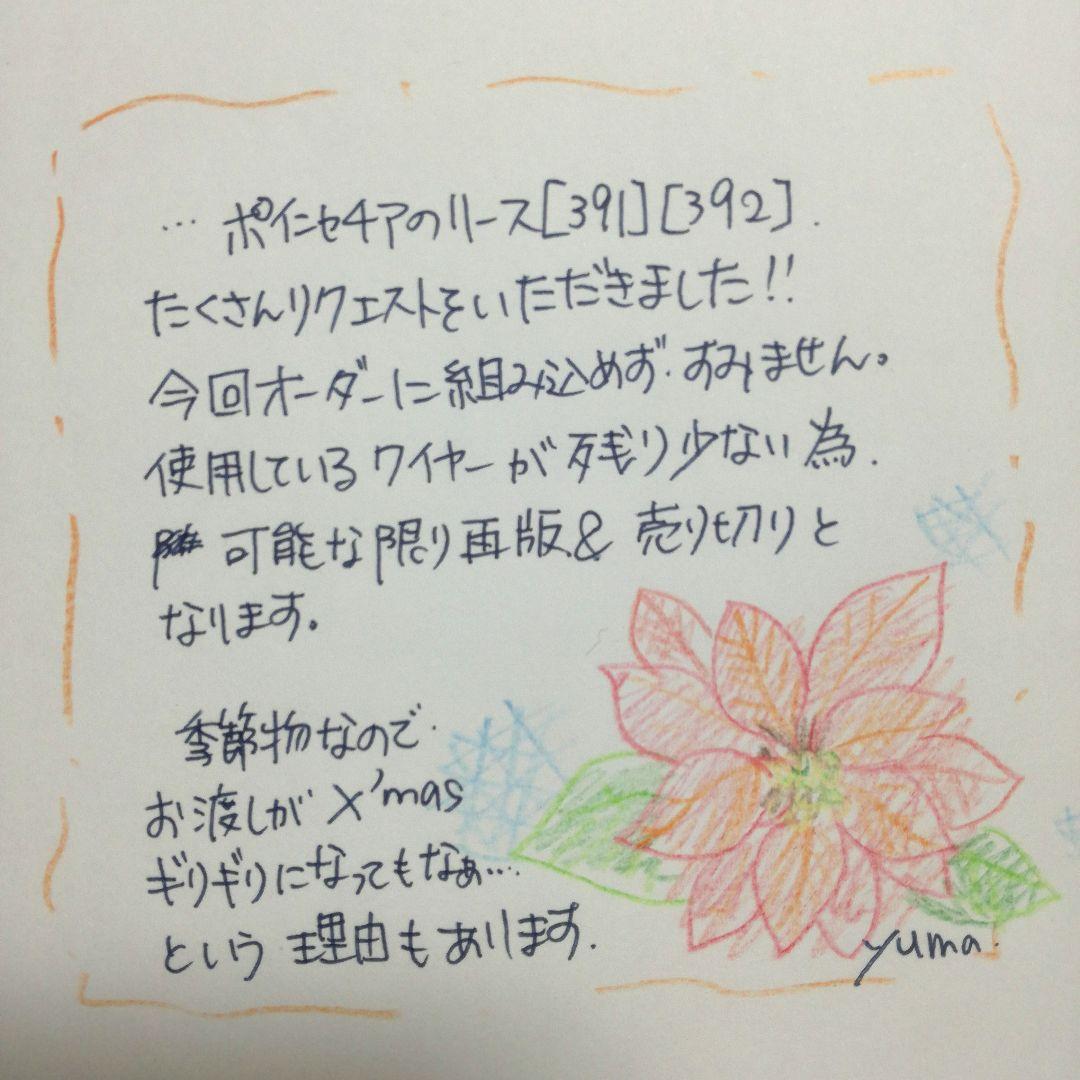 … ポインセチアのリース[391][392].
たくさんリクエストをいただきました!!
今回オーダーに組み込めず.すみません。
使用しているワイヤーが残り少ない為.
可能な限り再版&売り切りと
なります。
季節物なので.
お渡しがX'mas
ギリギリになってもなぁ…
という理由もあります.
yuma.